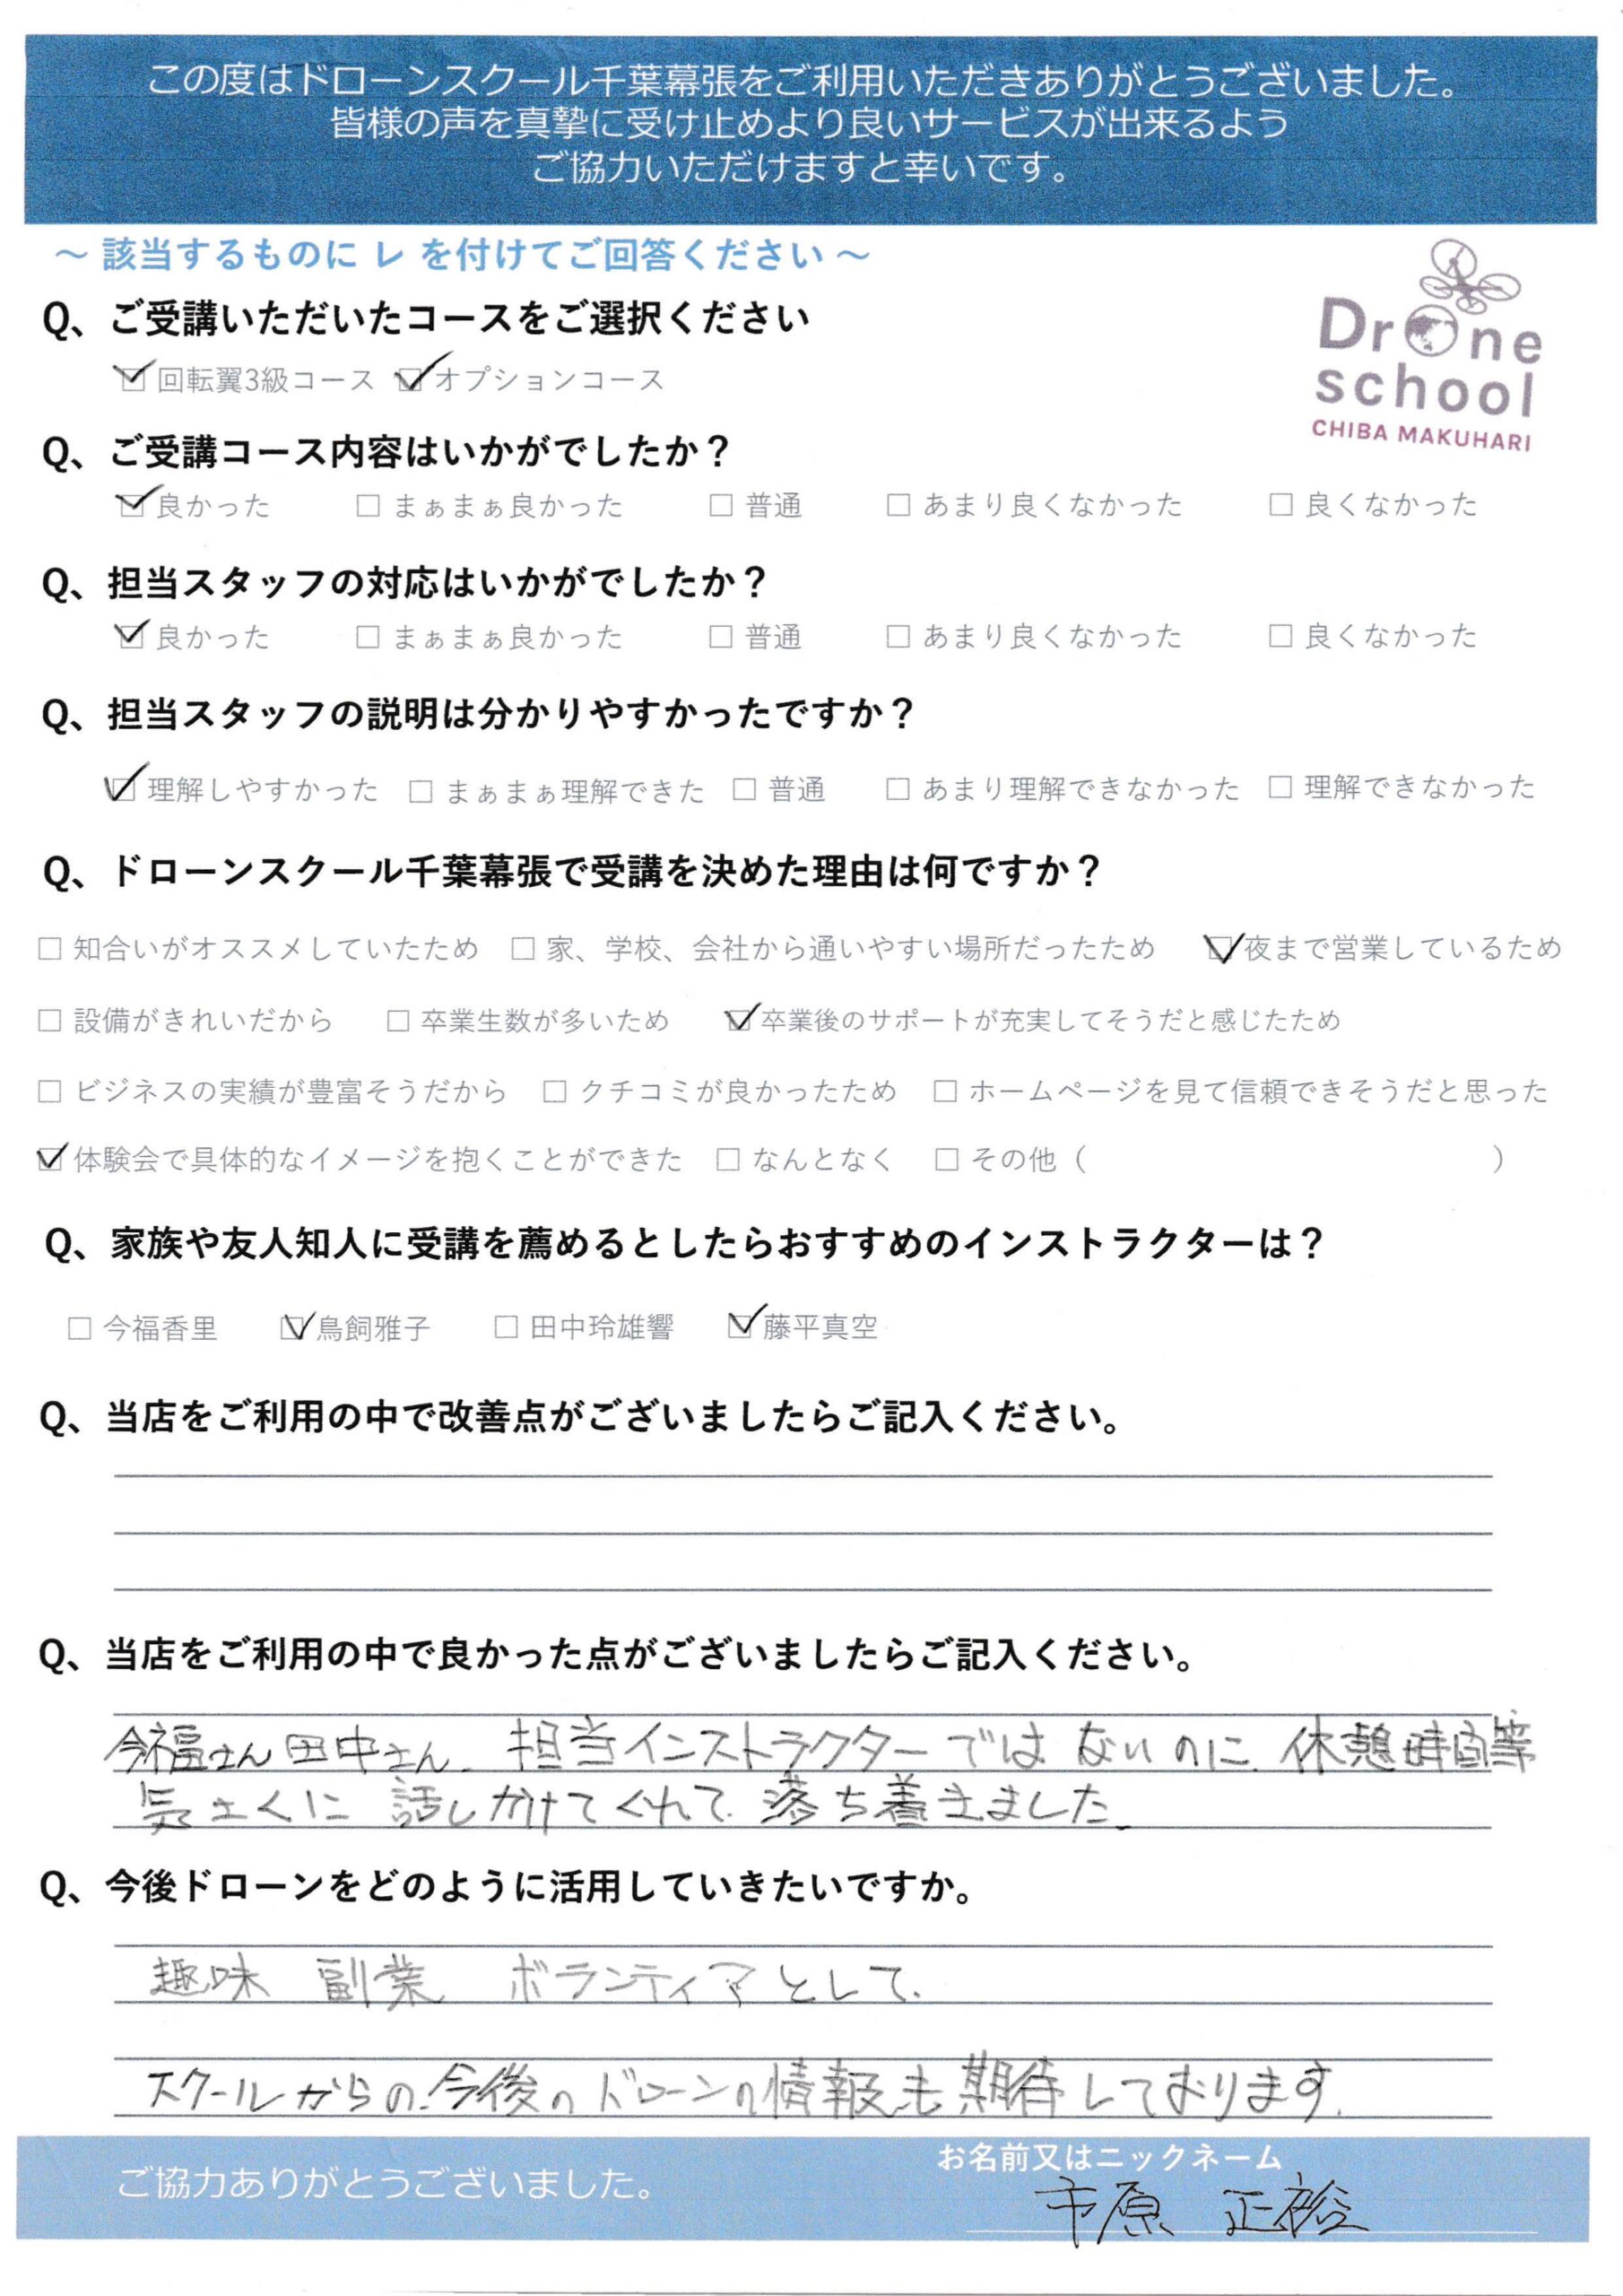 この度はドローンスクール千葉幕張をご利用いただきありがとうございました。
皆様の声を真摯に受け止めより良いサービスが出来るよう
ご協力いただけますと幸いです。
～ 該当するものに レ を付けてご回答ください ～
Drone
school
CHIBA MAKUHARI
Q、ご受講いただいたコースをご選択ください
☑回転翼3級コース ☑オプションコース
Q、ご受講コース内容はいかがでしたか？
☑良かった □ まぁまぁ良かった □ 普通 □ あまり良くなかった □ 良くなかった
Q、担当スタッフの対応はいかがでしたか？
☑良かった □ まぁまぁ良かった □ 普通 □ あまり良くなかった □ 良くなかった
Q、担当スタッフの説明は分かりやすかったですか？
☑理解しやすかった □ まぁまぁ理解できた □ 普通 □ あまり理解できなかった □ 理解できなかった
Q、ドローンスクール千葉幕張で受講を決めた理由は何ですか？
□ 知合いがオススメしていたため □ 家、学校、会社から通いやすい場所だったため ☑夜まで営業しているため
□ 設備がきれいだから □ 卒業生数が多いため ☑卒業後のサポートが充実してそうだと感じたため
□ ビジネスの実績が豊富そうだから □ クチコミが良かったため □ ホームページを見て信頼できそうだと思った
☑体験会で具体的なイメージを抱くことができた □ なんとなく □ その他（ ）
Q、家族や友人知人に受講を薦めるとしたらおすすめのインストラクターは？
□ 今福香里 ☑鳥飼雅子 □ 田中玲雄響 ☑藤平真空
Q、当店をご利用の中で改善点がございましたらご記入ください。
Q、当店をご利用の中で良かった点がございましたらご記入ください。
今福さん 田中さん、担当インストラクターではないのに、休憩時間等
気さくに 話しかけてくれて、落ち着きました。
Q、今後ドローンをどのように活用していきたいですか。
趣味 副業 ボランティアとして、
スクールからの、今後のドローンの情報も期待しております。
ご協力ありがとうございました。
お名前又はニックネーム
市原 正裕